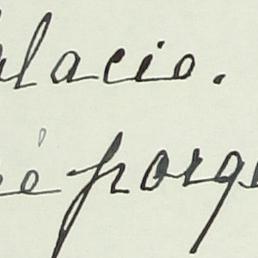 alacio.
é porq